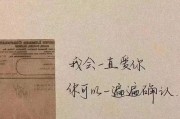 我会一直爱你
你可以一遍遍确认.